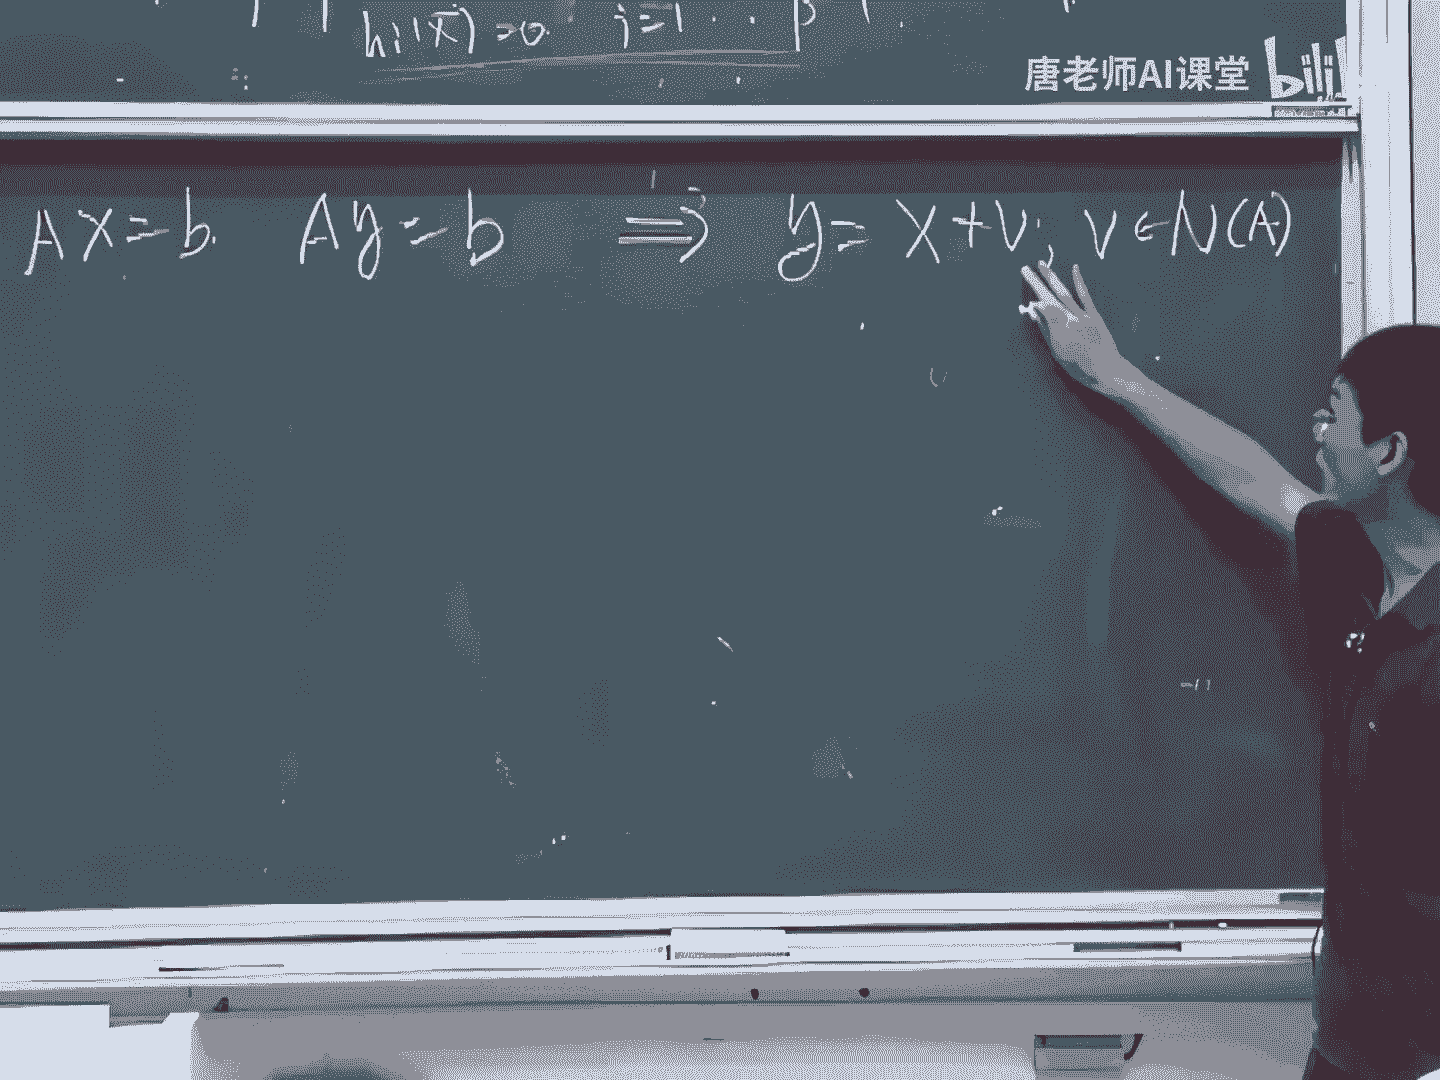 hi(x̄)=0. i=1 . . . p
唐老师AI课堂 bili
Ax=b. Ay=b ⇒ y= x+v; v∈N(A)